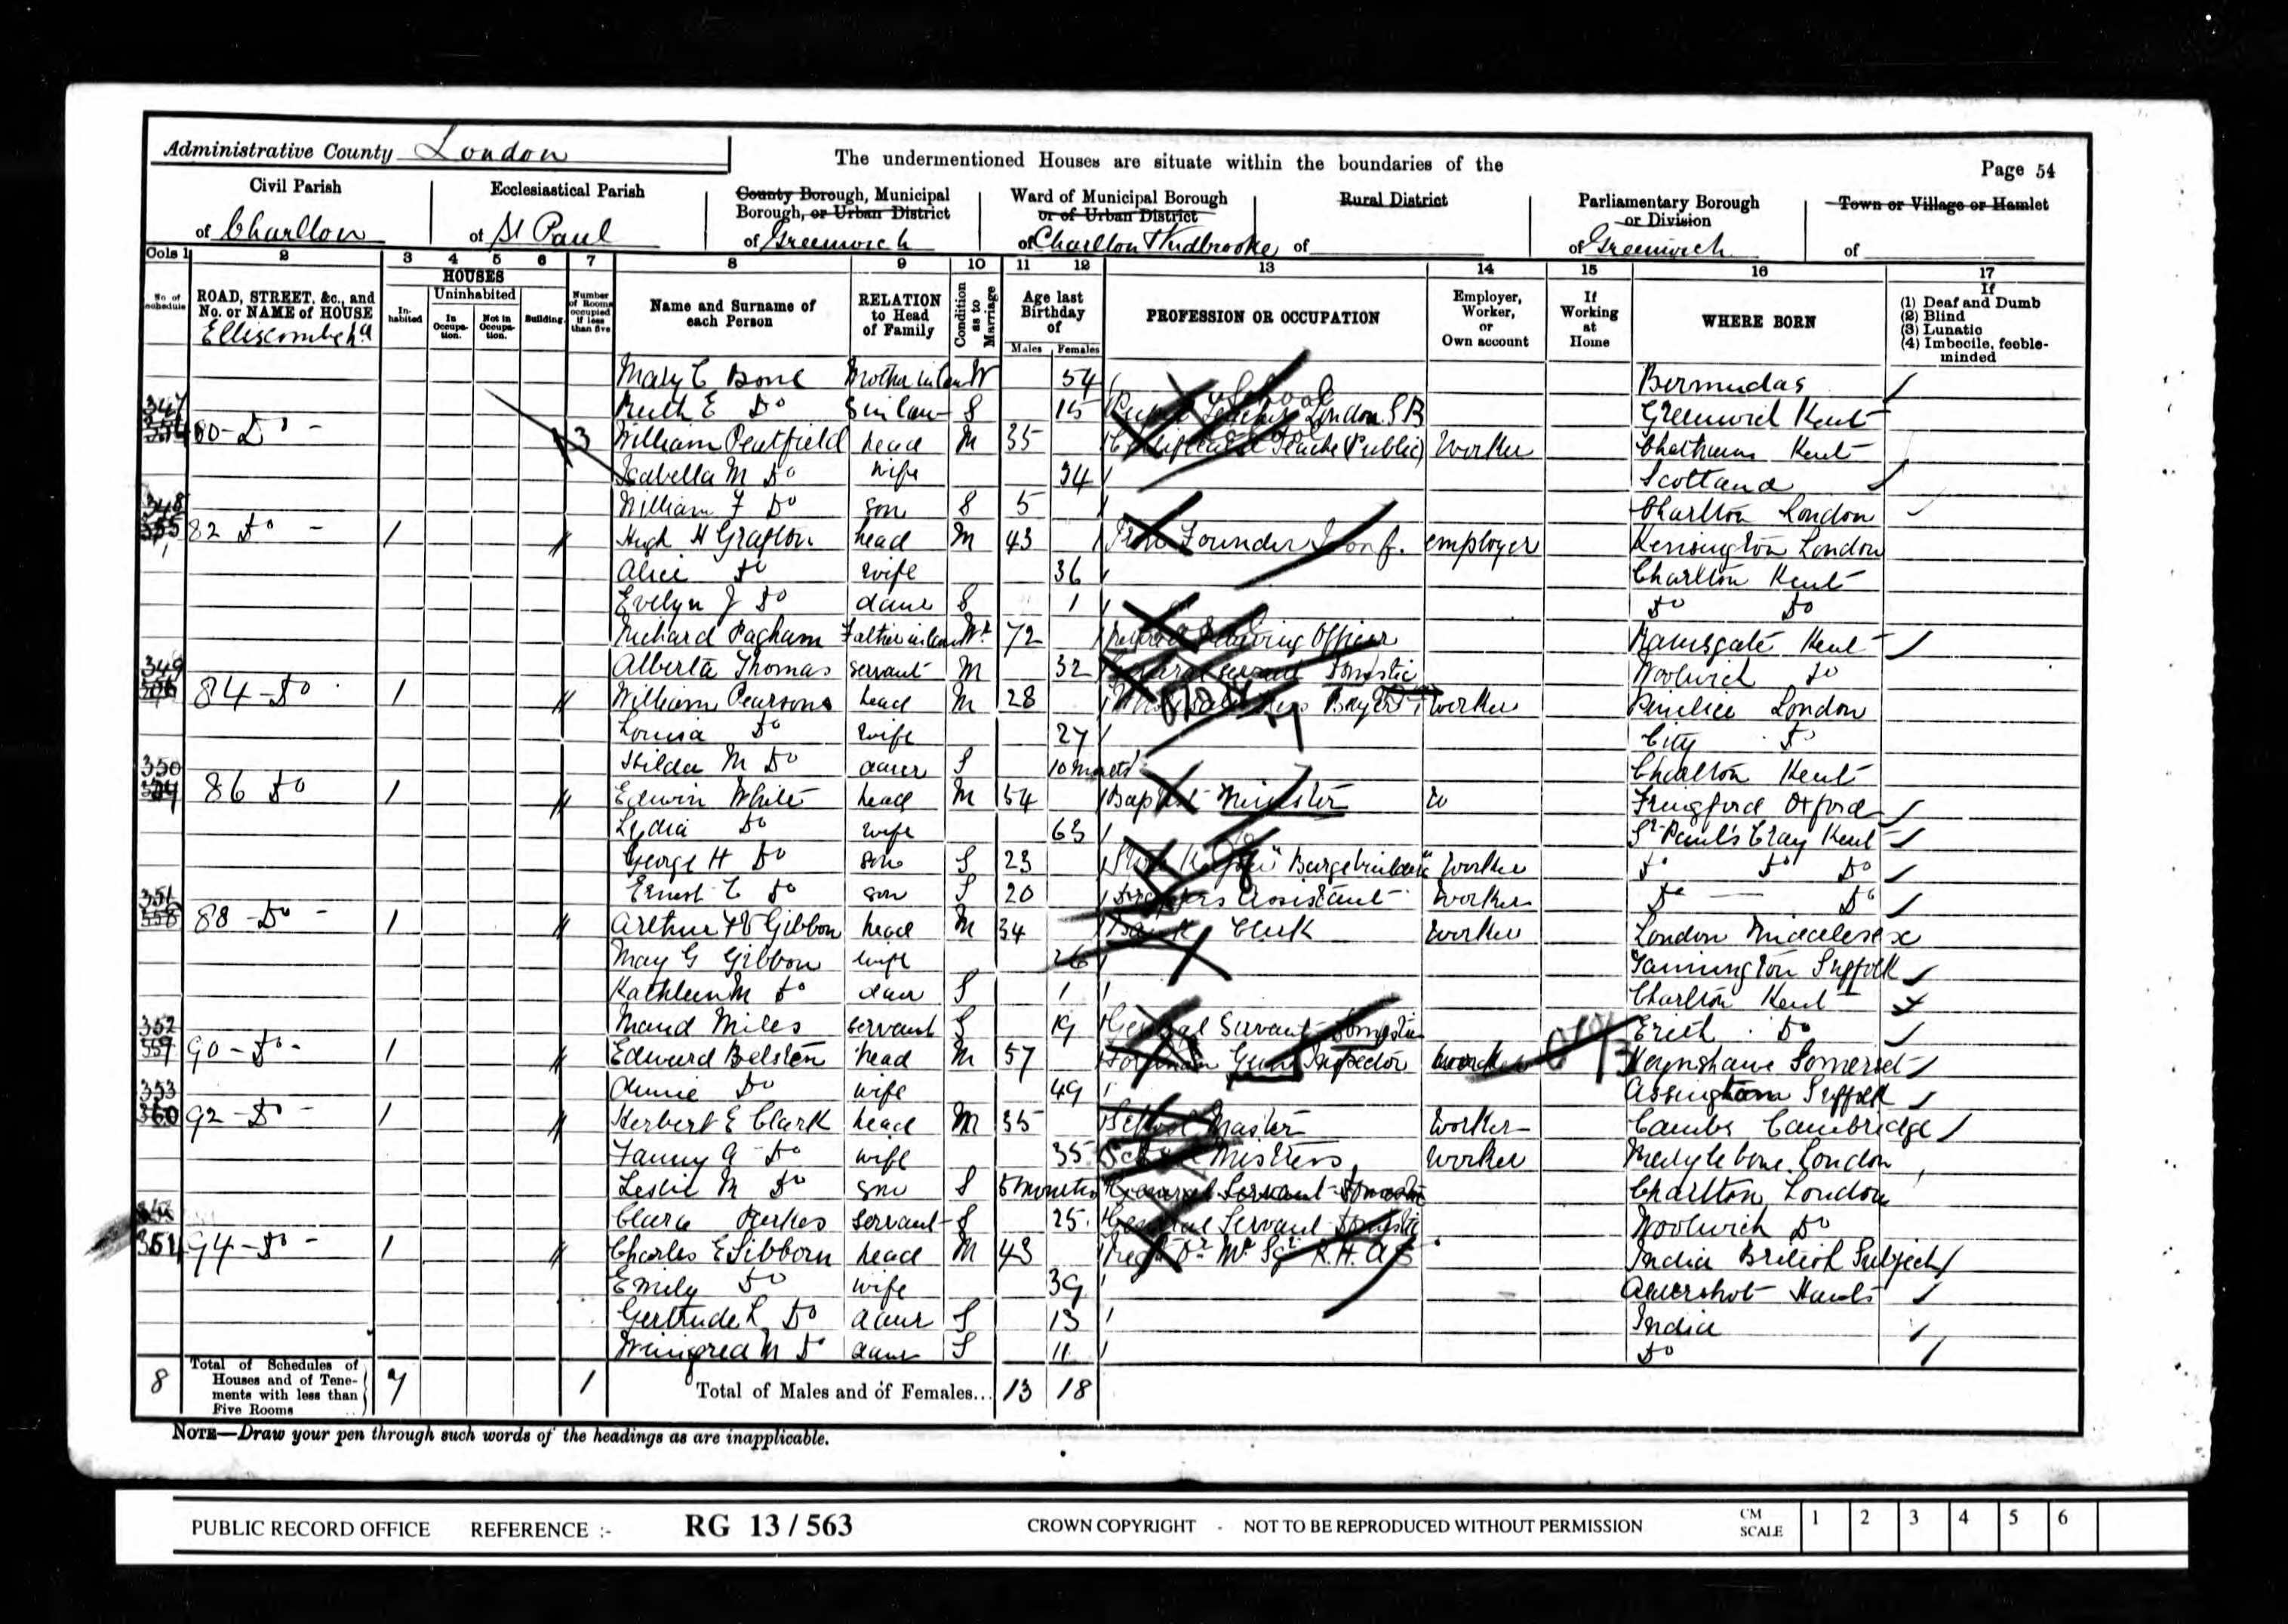 Administrative County London
The undermentioned Houses are situate within the boundaries of the
Page 54
Civil Parish of Charlton
Ecclesiastical Parish of St Paul
County Borough, Municipal Borough, or Urban District of Greenwich
Ward of Municipal Borough or of Urban District of Charlton Kidbrooke
Rural District of
Parliamentary Borough or Division of Greenwich
Town or Village or Hamlet of
Cols 1 2 3 4 5 6 7 8 9 10 11 12 13 14 15 16 17
No of schedule
ROAD, STREET, &c., and No. or NAME of HOUSE
HOUSES
Inhabited
Uninhabited
In Occupation.
Not in Occupation.
Building.
Number of Rooms occupied if less than five
Name and Surname of each Person
RELATION to Head of Family
Condition as to Marriage
Age last Birthday of
Males Females
PROFESSION OR OCCUPATION
Employer, Worker, or Own account
If Working at Home
WHERE BORN
If
(1) Deaf and Dumb
(2) Blind
(3) Lunatic
(4) Imbecile, feeble-minded
Elliscombe Rd
Mary C Bone Mother in law W 54 Bermudas
Ruth E Do S in law S 15 School Teacher London S B Greenwich Kent
347 80 Do 3 William Peatfield head M 35 Certificated Teacher (Public) Worker Chatham Kent
Isabella M Do wife 34 Scotland
William F Do son S 5 Charlton London
348 355 82 Do 1 Hugh H Grafton head M 43 Iron Founder employer Kensington London
Alice Do wife 36 Charlton Kent
Evelyn J Do daur S 1 Do Do
Richard Pagham Father in law Wr 72 Relieving Officer Ramsgate Kent
Alberta Thomas servant M 32 General servant Domestic Woolwich Do
349 84 Do 1 William Pearsons head M 28 Buyer Worker Pimlico London
Louisa Do wife 27 City Do
Hilda M Do daur S 10 months Charlton Kent
350 86 Do 1 Edwin White head M 54 Baptist Minister W Fringford Oxford
Lydia Do wife 63 St Paul's Cray Kent
George H Do son S 23 Barge builder Worker Do Do Do
Ernest C Do son S 20 Drapers Assistant Worker Do Do
351 358 88 Do 1 Arthur Gibbon head M 34 Bank Clerk Worker London Middlesex
May G Gibbon wife 26 Tannington Suffolk
Kathleen M Do daur S 1 Charlton Kent
Maud Miles servant S 19 General Servant Domestic Erith Do
352 359 90 Do 1 Edward Belsten head M 57 Foreman Gun Inspector Worker Keynsham Somerset
Annie Do wife 49 Assington Suffolk
353 360 92 Do 1 Herbert E Clark head M 35 School Master Worker Cambs Cambridge
Fanny A Do wife 35 School Mistress Worker Marylebone London
Leslie M Do son S 5 months General Servant Domestic Charlton London
Clara Perkes Servant S 25 General Servant Domestic Woolwich Do
94 Do 1 Charles E Sibborn head M 43 India British Subject
Emily Do wife 39 Aldershot Hants
Gertrude L Do daur S 13 India
Winifred M Do daur S 11 Do
8 Total of Schedules of Houses and of Tenements with less than Five Rooms 7 1 Total of Males and of Females... 13 18
NOTE—Draw your pen through such words of the headings as are inapplicable.
PUBLIC RECORD OFFICE REFERENCE :- RG 13 / 563 CROWN COPYRIGHT - NOT TO BE REPRODUCED WITHOUT PERMISSION CM SCALE 1 2 3 4 5 6